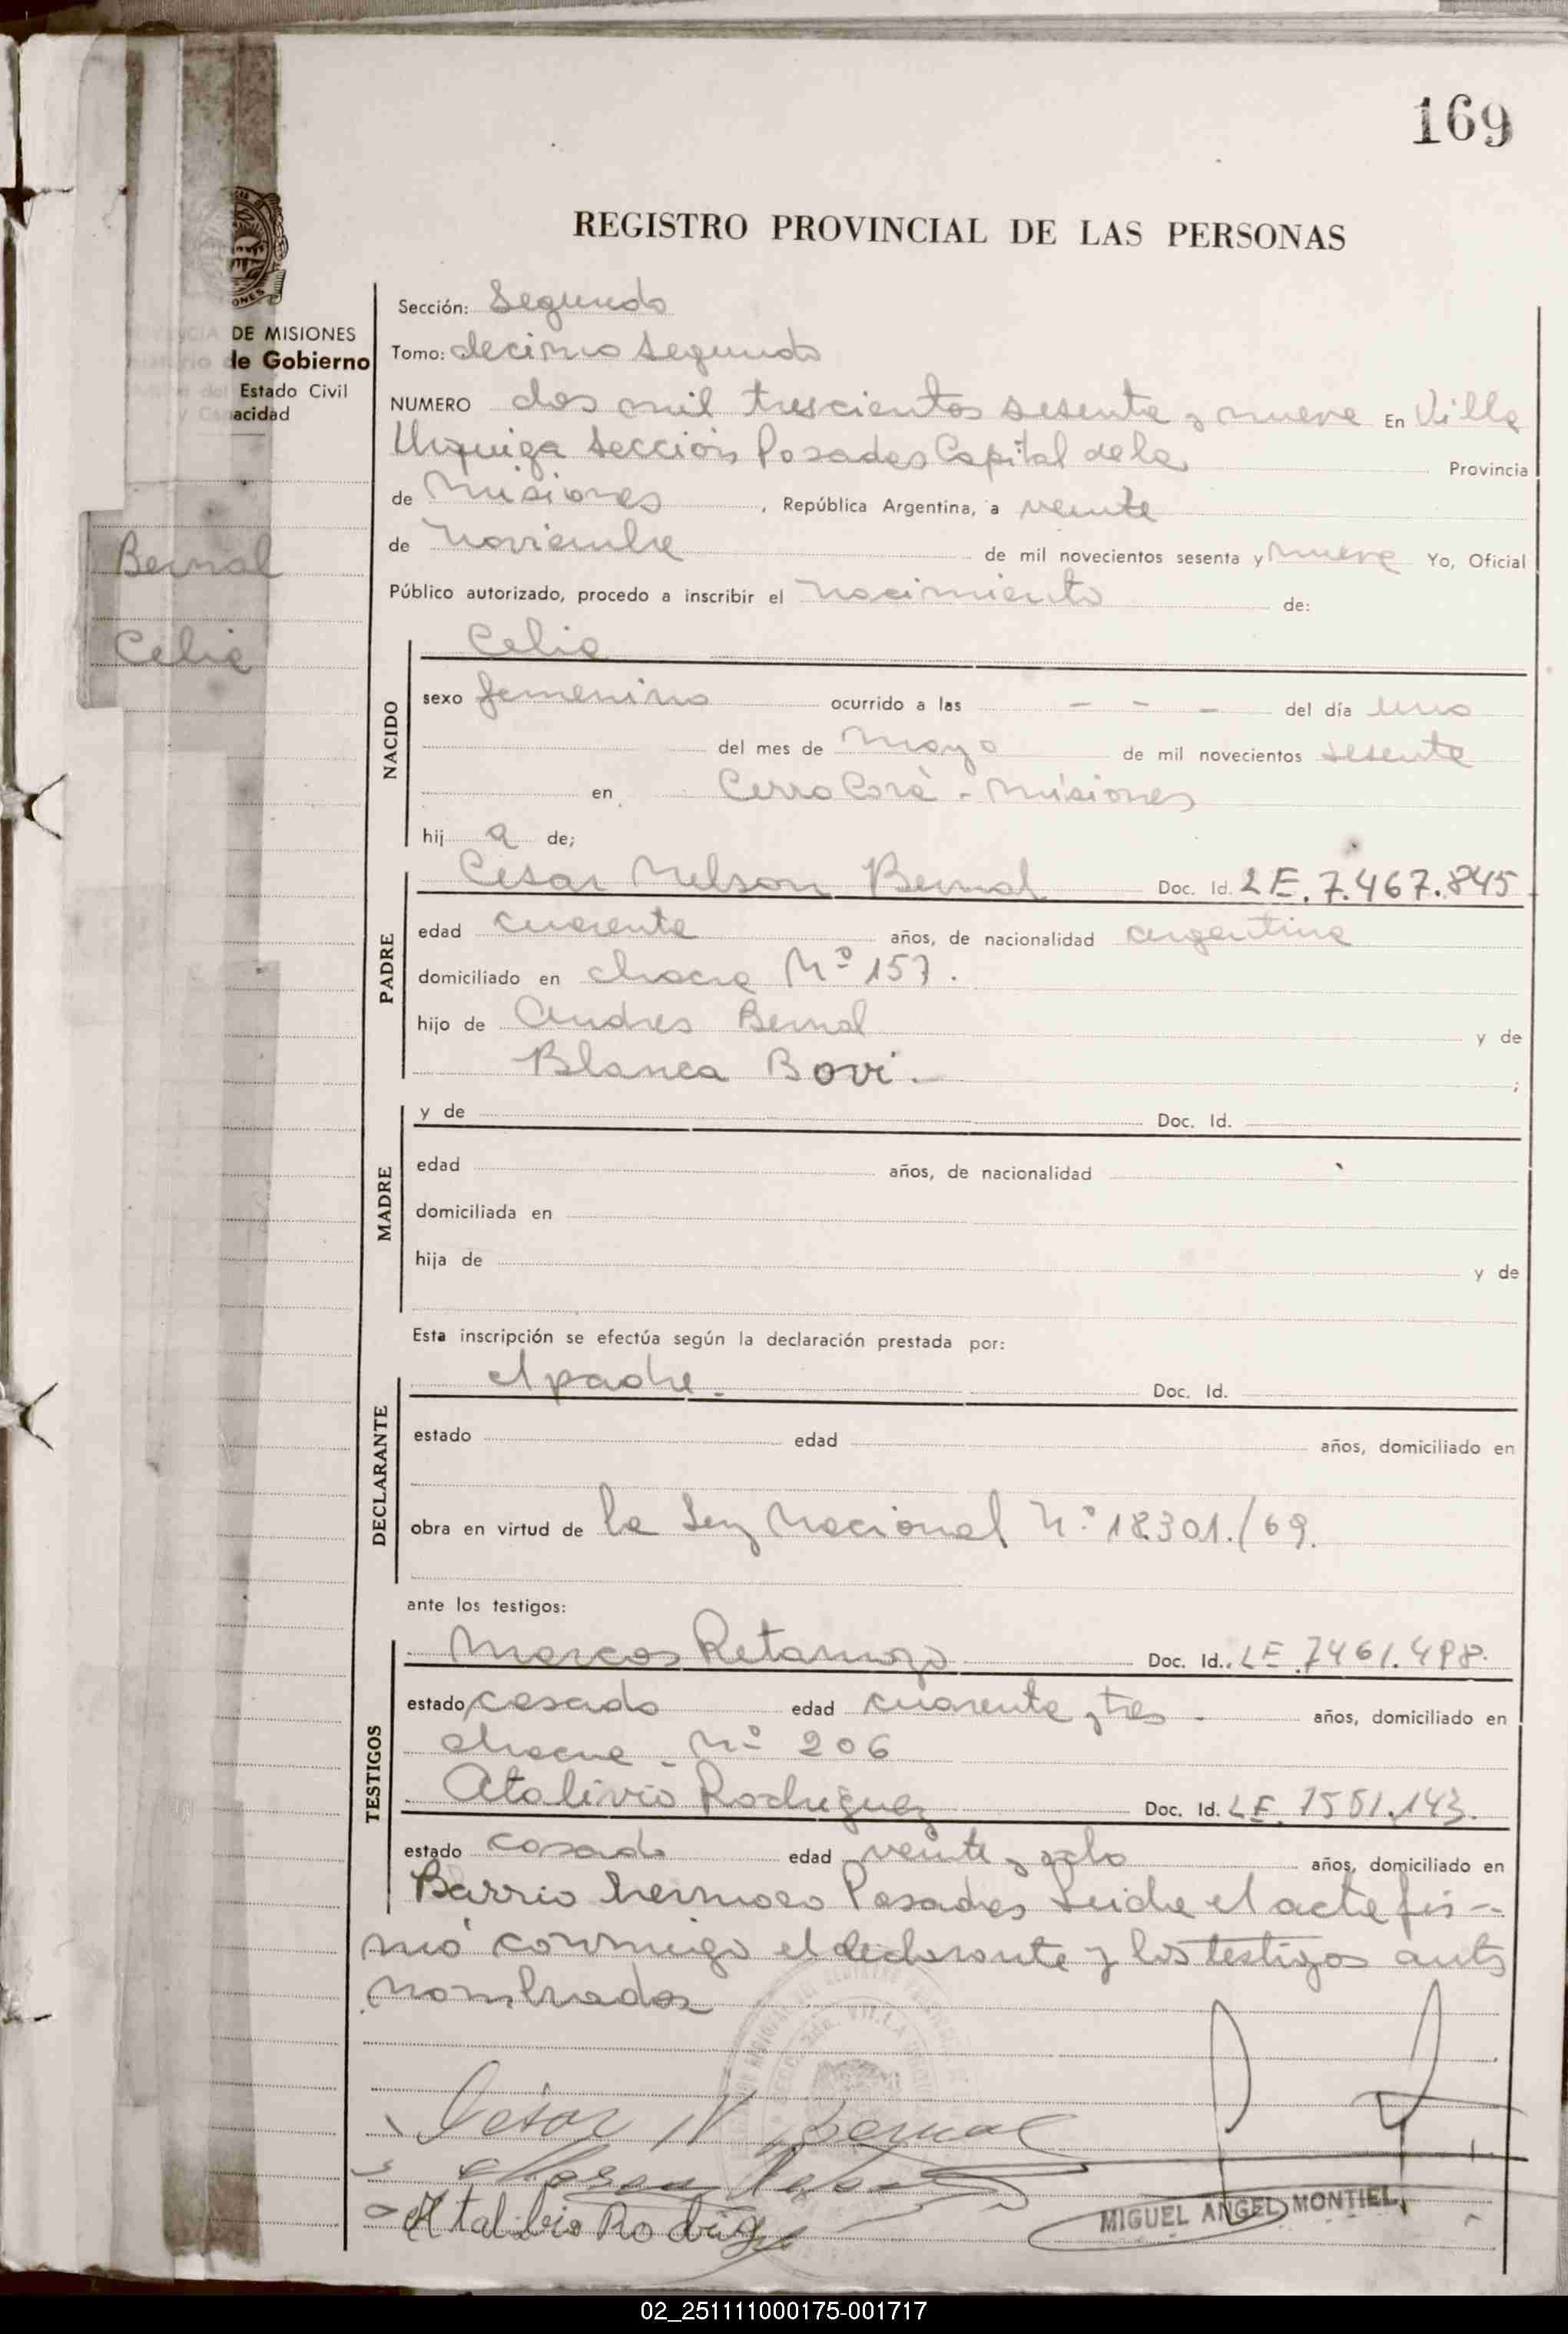 169
REGISTRO PROVINCIAL DE LAS PERSONAS
DE MISIONES
de Gobierno
Estado Civil
y Capacidad
Bernal
Celia
Sección: Segundo
Tomo: decimo segundo
NUMERO dos mil trescientos sesenta y nueve En Villa
Urquiza Sección Posadas Capital de la Provincia
de Misiones, República Argentina, a veinte
de Noviembre de mil novecientos sesenta y nueve Yo, Oficial
Público autorizado, procedo a inscribir el nacimiento de:
NACIDO
Celia
sexo femenino ocurrido a las - - - del día uno
del mes de mayo de mil novecientos sesenta
en Cerro Corá - Misiones
hij a de;
PADRE
Cesar Nelson Bernal Doc. Id. LE. 7.467.845
edad cuarenta años, de nacionalidad argentina
domiciliado en chacra Nº 157.
hijo de Andres Bernal y de
Blanca Bovi.- ;
MADRE
y de Doc. Id.
edad años, de nacionalidad
domiciliada en
hija de y de
Esta inscripción se efectúa según la declaración prestada por:
DECLARANTE
el padre. Doc. Id.
estado edad años, domiciliado en
obra en virtud de la Ley Nacional Nº 18.301./69.
ante los testigos:
TESTIGOS
Marcos Retamozo Doc. Id. LE. 7461.498.
estado casado edad cuarenta y tres - años, domiciliado en
chacra - Nº 206
Atalivio Rodriguez Doc. Id. LE. 7551.143.
estado casado edad veinte y ocho años, domiciliado en
Barrio hermoso Posadas Leida el acta fir-
mó conmigo el declarante y los testigos ants
nombrados
Cesar N Bernal
Atalibio Rodrigu
MIGUEL ANGEL MONTIEL
02_251111000175-001717